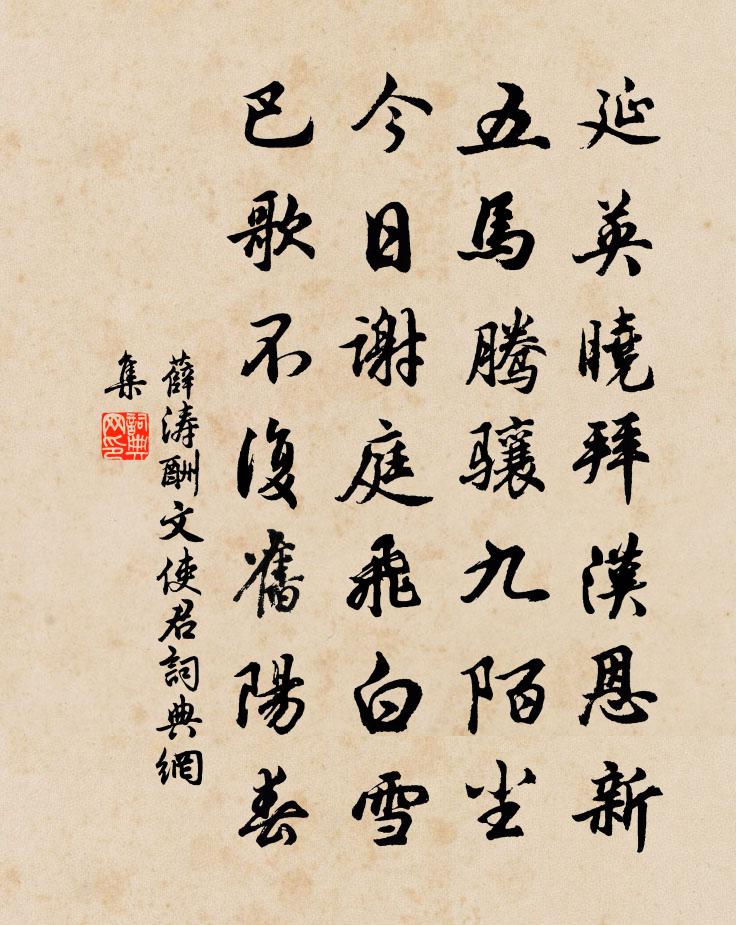 延英曉拜漢恩新
五馬騰驤九陌尘
今日謝庭飛白雪
巴歌不復舊陽春
薛濤酬文使君詞典網
集
詞典
网印